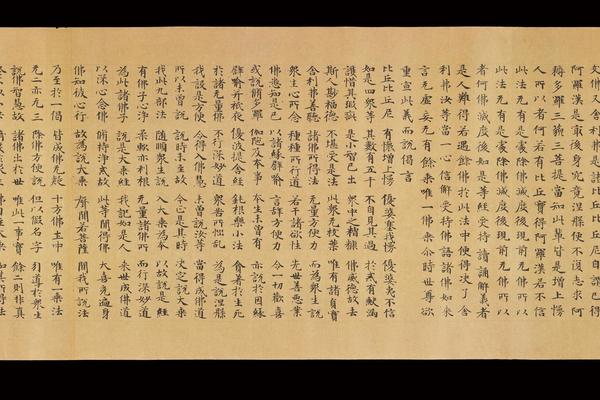 佛又舍利弗是諸比丘比丘尼自謂已得
阿羅漢是最後身究竟涅槃便不復志求阿
耨多羅三藐三菩提當知此輩皆是增上慢
人所以者何若有比丘實得阿羅漢若不信
此法无有是處除佛滅度後現前无佛所以
此法无有是處除佛滅度後現前无佛所以
者何佛滅度後如是等經受持讀誦解義者
是人難得若遇餘佛於此法中便得決了舍
利弗汝等當一心信解受持佛語諸佛如來
言无虛妄无有餘乘唯一佛乘尒時世尊欲
重宣此義而說偈言
比丘比丘尼 有懷增上慢 優婆塞我慢 優婆夷不信
如是四眾等 其數有五千 不自見其過 於戒有缺漏
護惜其瑕疵 是小智已出 眾中之糟糠 佛威德故去
斯人尠福德 不堪受是法 此眾无枝葉 唯有諸貞實
舍利弗善聽 諸佛所得法 无量方便力 而為眾生說
眾生心所念 種種所行道 若干諸欲性 先世善惡業
佛悉知是已 以諸緣譬喻 言辭方便力 令一切歡喜
或說脩多羅 伽陀及本事 本生未曾有 亦說於因緣
譬喻并祇夜 優波提舍經 鈍根樂小法 貪著於生死
於諸无量佛 不行深妙道 眾苦所惱亂 為是說涅槃
我設是方便 令得入佛慧 未曾說汝等 當得成佛道
所以未曾說 說時未至故 今正是其時 決定說大乘
我此九部法 隨順眾生說 入大乘為本 以故說是經
有佛子心淨 柔軟亦利根 无量諸佛所 而行深妙道
為此諸佛子 說是大乘經 我記如是人 來世成佛道
以深心念佛 脩持淨戒故 此等聞得佛 大喜充遍身
佛知彼心行 故為說大乘 聲聞若菩薩 聞我所說法
乃至於一偈 皆成佛无疑 十方佛土中 唯有一乘法
无二亦无三 除佛方便說 但以假名字 引導於眾生
說佛智慧故 諸佛出於世 唯此一事實 餘二則非真